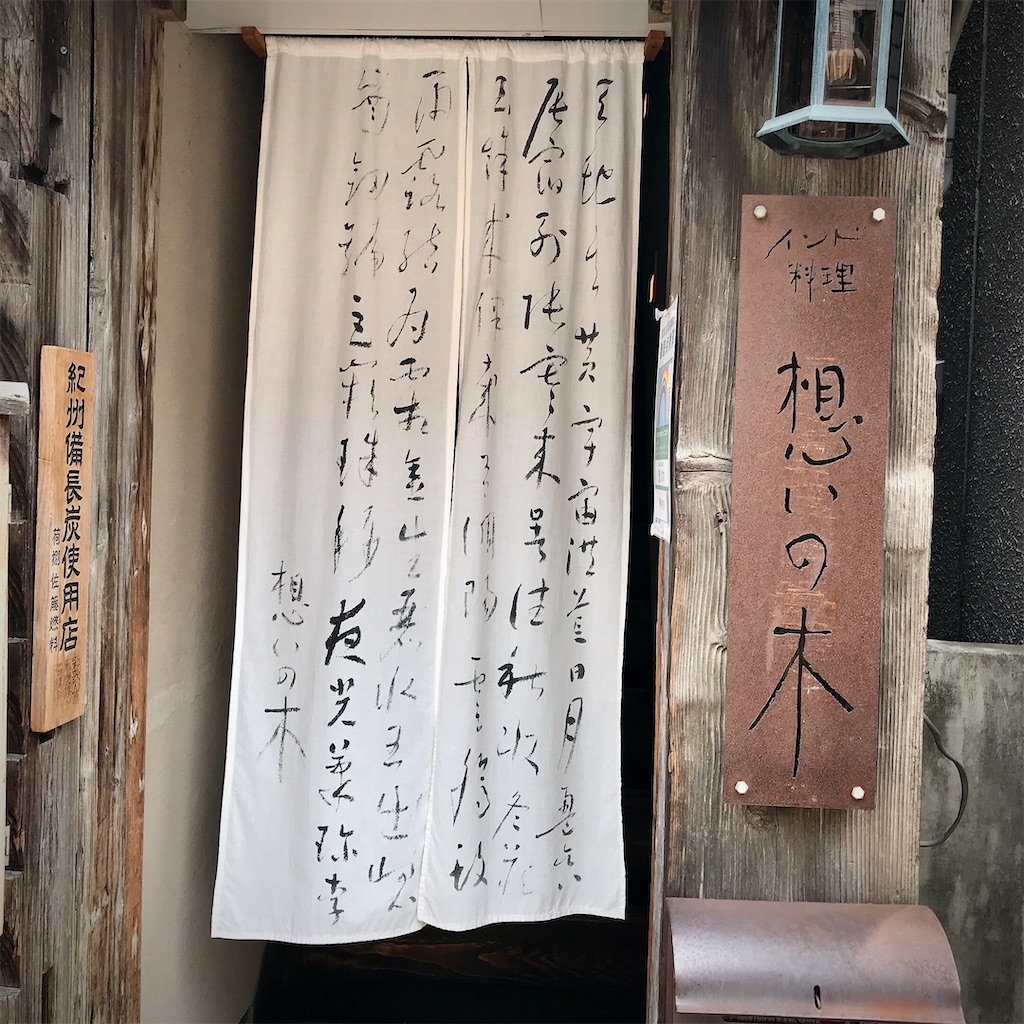 天地玄黄宇宙洪荒日月盈昃
辰宿列張寒来暑往秋収冬蔵
閏餘成歳律呂調陽雲騰致
雨露結為霜金生麗水玉出崑
崗剣号巨闕珠称夜光菓珍李
想いの木
インド
料理
想いの木
紀州備長炭使用店
荷捌佐藤燃料